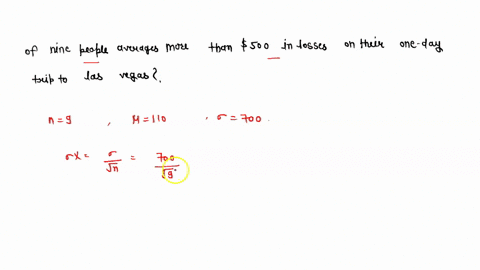 of nine people averages more than $500 in losses on their one-day
trip to las vegas?.
n=9 , M=110 , σ=700.
σx = σ/√n = 700/√9